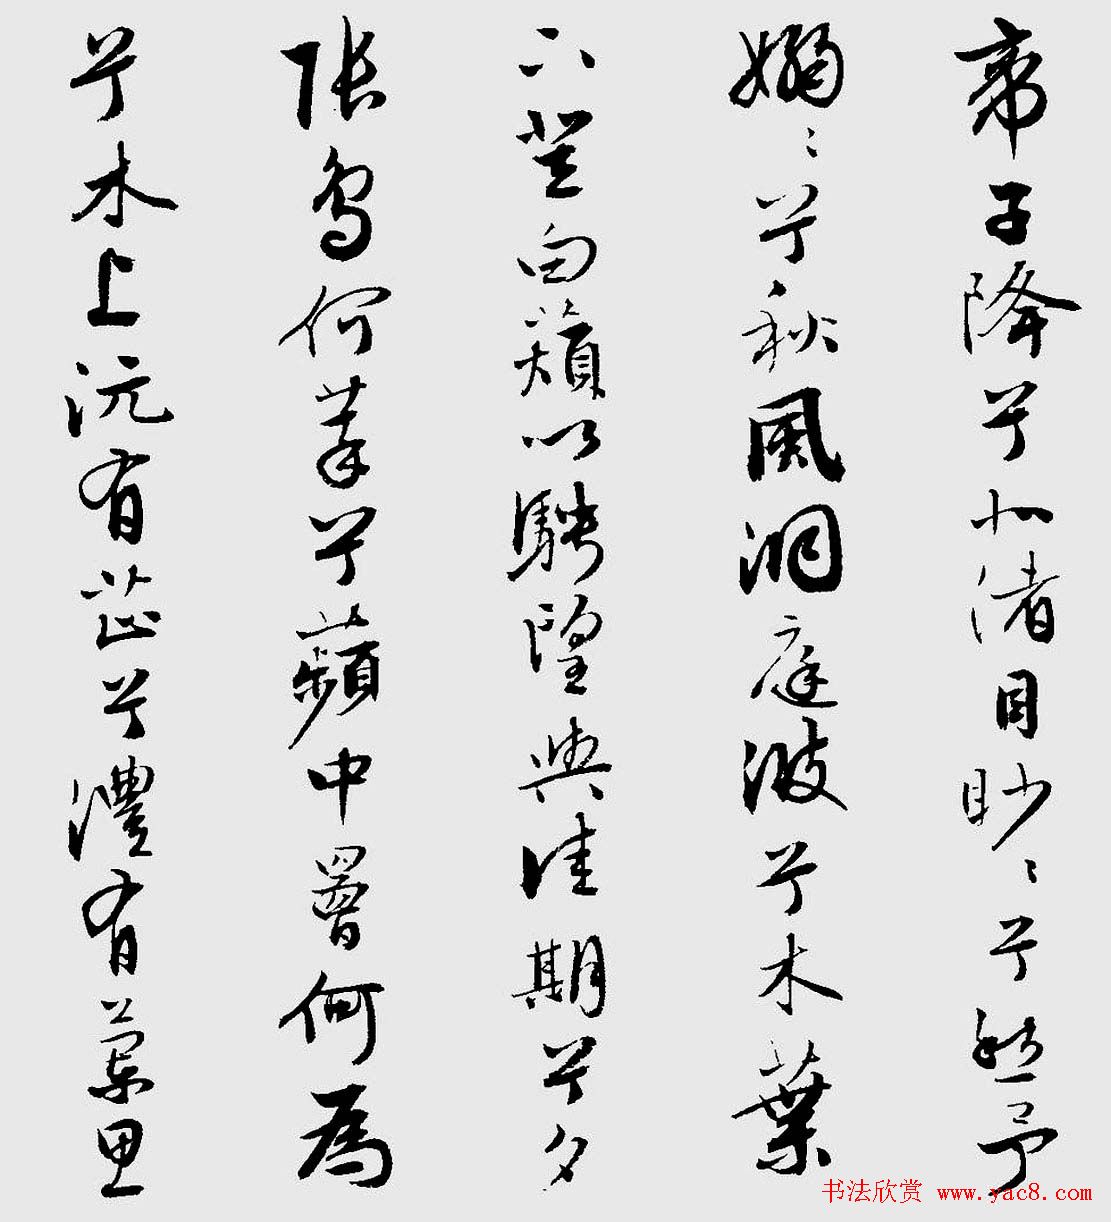 帝子降兮北渚目眇〻兮愁予
嫋〻兮秋風洞庭波兮木葉
下登白薠以騁望與佳期兮夕
張鳥何萃兮蘋中罾何為
兮木上沅有茝兮澧有蘭思
书法欣赏 www.yac8.com